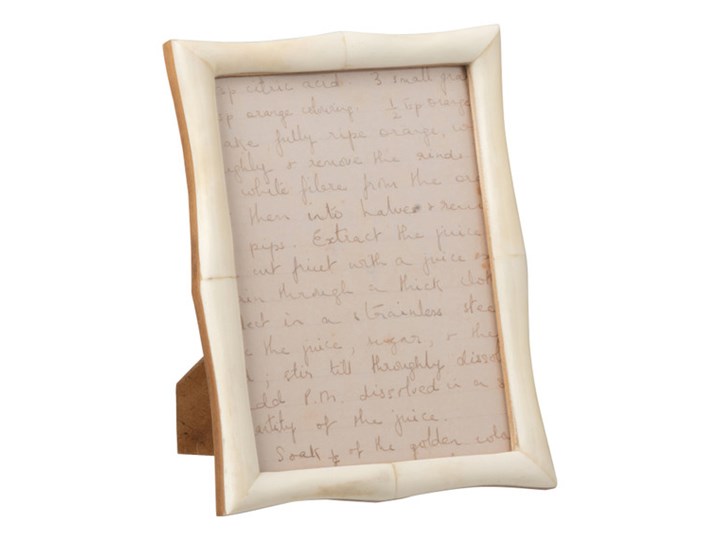 sp citric acid 3 small
sp orange colouring. ½ tsp orange
fully ripe orange,
& remove the rinds
white fibre from the
then into halves &
pips. Extract the juice
cut fruit with a juice
through a thick cloth
in a strainless stee
the juice, sugar, & the
, stir till throughly dissol
dd P.M. dissolved in a s
antity of the juice.
Soak ½ of the golden colo